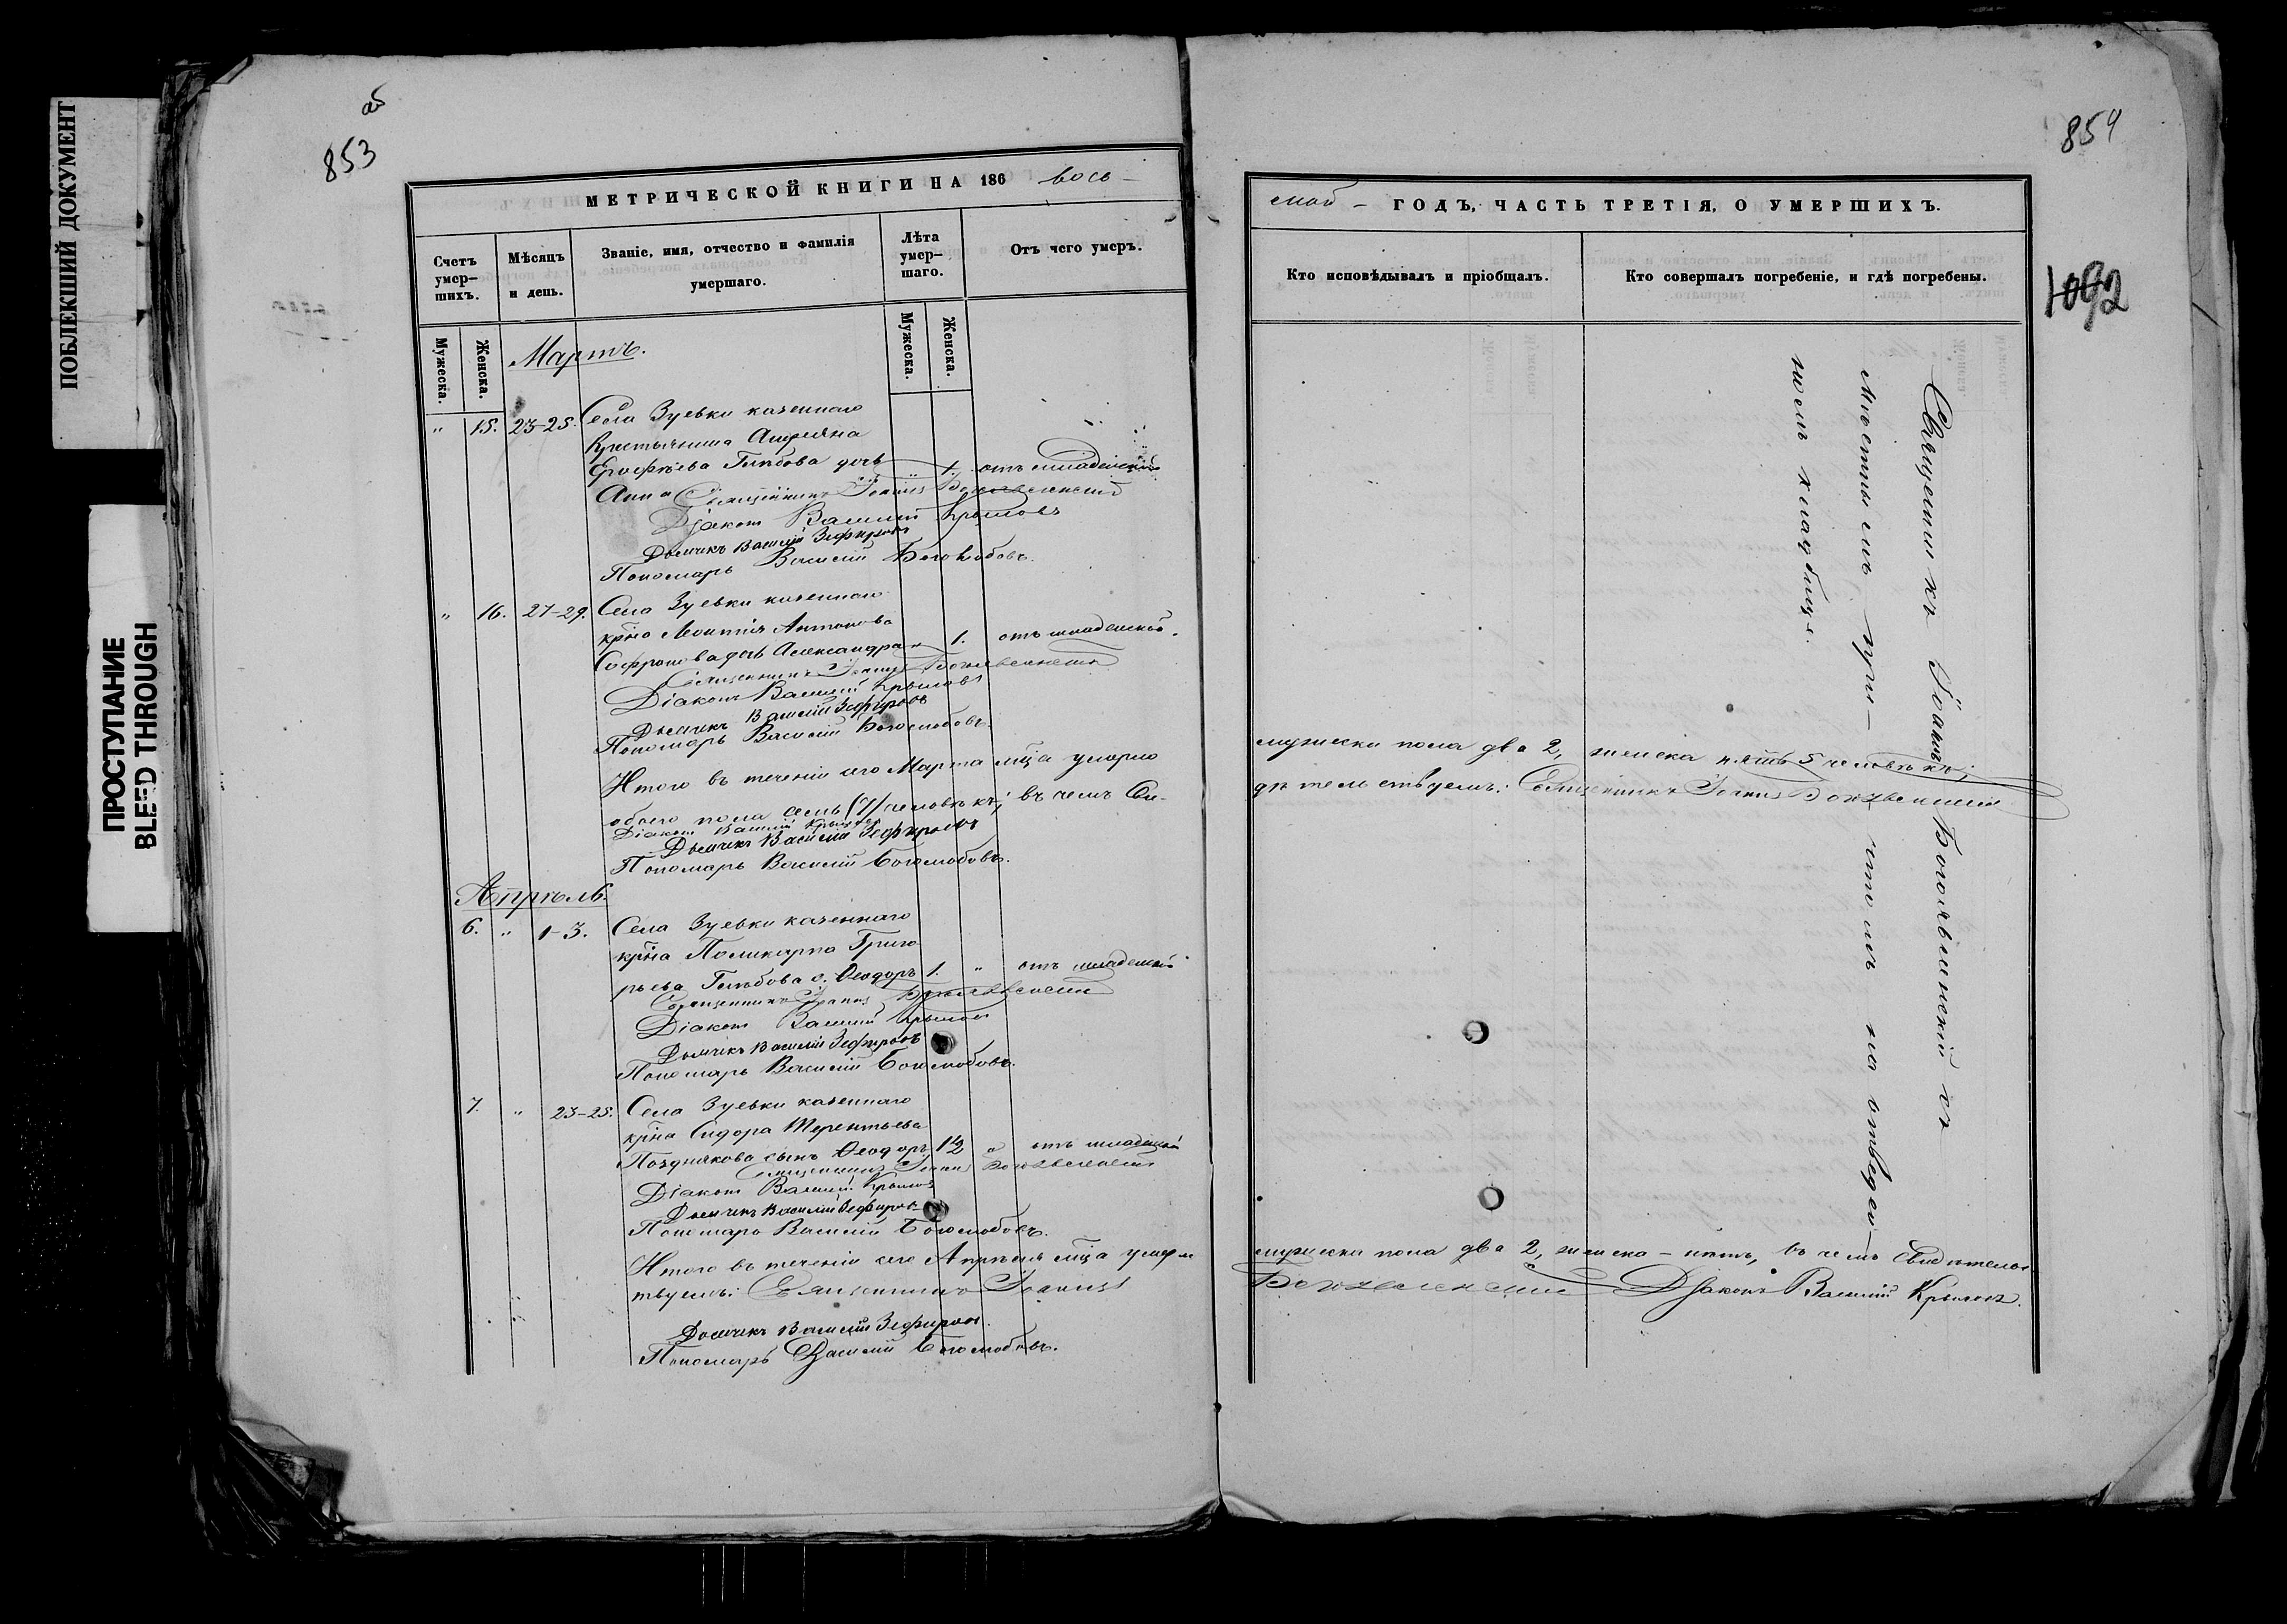 ПОБЛЕКШИЙ ДОКУМЕНТ
ПРОСТУПАНИЕ
BLEED THROUGH
об
853
МЕТРИЧЕСКОЙ КНИГИ НА 186 вось-
Счетъ умер-шихъ.
Мѣсяцъ и день.
Званіе, имя, отчество и фамилія умершаго.
Лѣта умер-шаго.
Отъ чего умеръ.
Мужеска.
Женска.
Мужеска.
Женска.
Мартъ.
" 15. 23-25. Села Зуевки казеннаго
Крестьянина Андреяна
Ерофѣева Глѣбова дочь
Анна " 1. отъ младенской
Священникъ Іоаннъ Богоявленский
Діаконъ Василий Крыловъ
Дьячекъ Василій Зефировъ
Пономарь Василій Боголюбовъ.
" 16. 27-29. Села Зуевки казеннаго
крна Антонова
Софронова дочь Александра " 1. отъ младенской.
Священникъ Іоаннъ Богоявленский
Діаконъ Василий Крыловъ
Дьячекъ Василій Зефировъ
Пономарь Василій Боголюбовъ.
Итого въ теченіи сего Марта мца умерло
обоего пола семь (7) человѣкъ; въ чемъ Сви-
Діаконъ Василий Крыловъ
Дьячекъ Василій Зефировъ
Пономарь Василій Боголюбовъ.
Апрѣль.
6. " 1-3. Села Зуевки казеннаго
крна Поликарпа Григо
рьева Глѣбова с. Ѳеодоръ 1. " отъ младенской
Священникъ Іоаннъ Богоявленский
Діаконъ Василий Крыловъ
Дьячекъ Василій Зефировъ
Пономарь Василій Боголюбовъ.
7. " 23-25. Села Зуевки казеннаго
крна Сидора Терентьева
Позднякова сынъ Ѳеодоръ 1 1/2 " отъ младенской
Священникъ Іоаннъ Богоявленский
Діаконъ Василий Крыловъ
Дьячекъ Василій Зефировъ
Пономарь Василій Боголюбовъ.
Итого въ теченіи сего Апрѣля мца умерло
твуемъ: Священникъ Іоаннъ
Дьячекъ Василій Зефировъ.
Пономарь Василій Боголюбовъ.
854
1092
смой - ГОДЪ, ЧАСТЬ ТРЕТІЯ, О УМЕРШИХЪ.
Кто исповѣдывалъ и пріобщалъ.
Кто совершалъ погребеніе, и гдѣ погребены.
Священникъ Іоаннъ Богоявленскій съ
мѣстнымъ при- чтомъ на отведен
номъ кладбищѣ.
мужеска пола два 2, женска пять 5 человѣкъ;
дѣтельствуемъ: Священникъ Іоаннъ Богоявленский
мужеска пола два 2, женска - нѣтъ, въ чемъ Свидѣтельс
Богоявленский Діаконъ Василий Крыловъ.